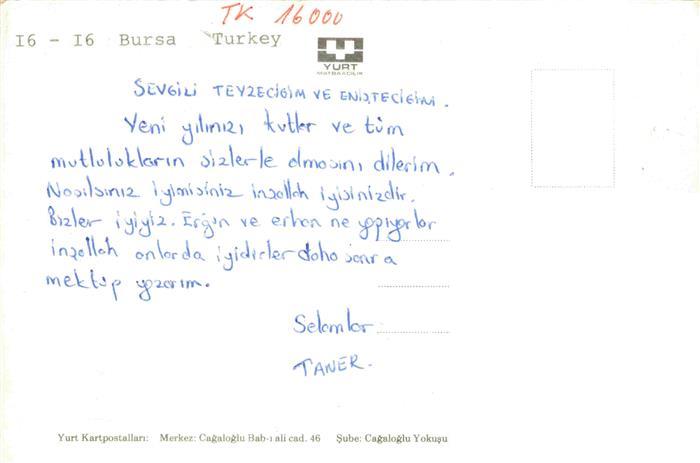 TK 16000
I6 - I6 Bursa Turkey
YURT
MATBAACILIK
SEVGİLİ TEYZECİĞİM VE ENİŞTECİĞİM.
Yeni yılınızı kutlar ve tüm
mutlulukların sizlerle olmasını dilerim.
Nasılsınız iyimisiniz inşallah iyisinizdir.
Bizler iyiyiz. Ergün ve erhan ne yapıyorlar
inşallah onlarda iyidirler daha sonra
mektup yazarım.
Selamlar
TANER.
Yurt Kartpostalları: Merkez: Cağaloğlu Bab-ı ali cad. 46 Şube: Cağaloğlu Yokuşu